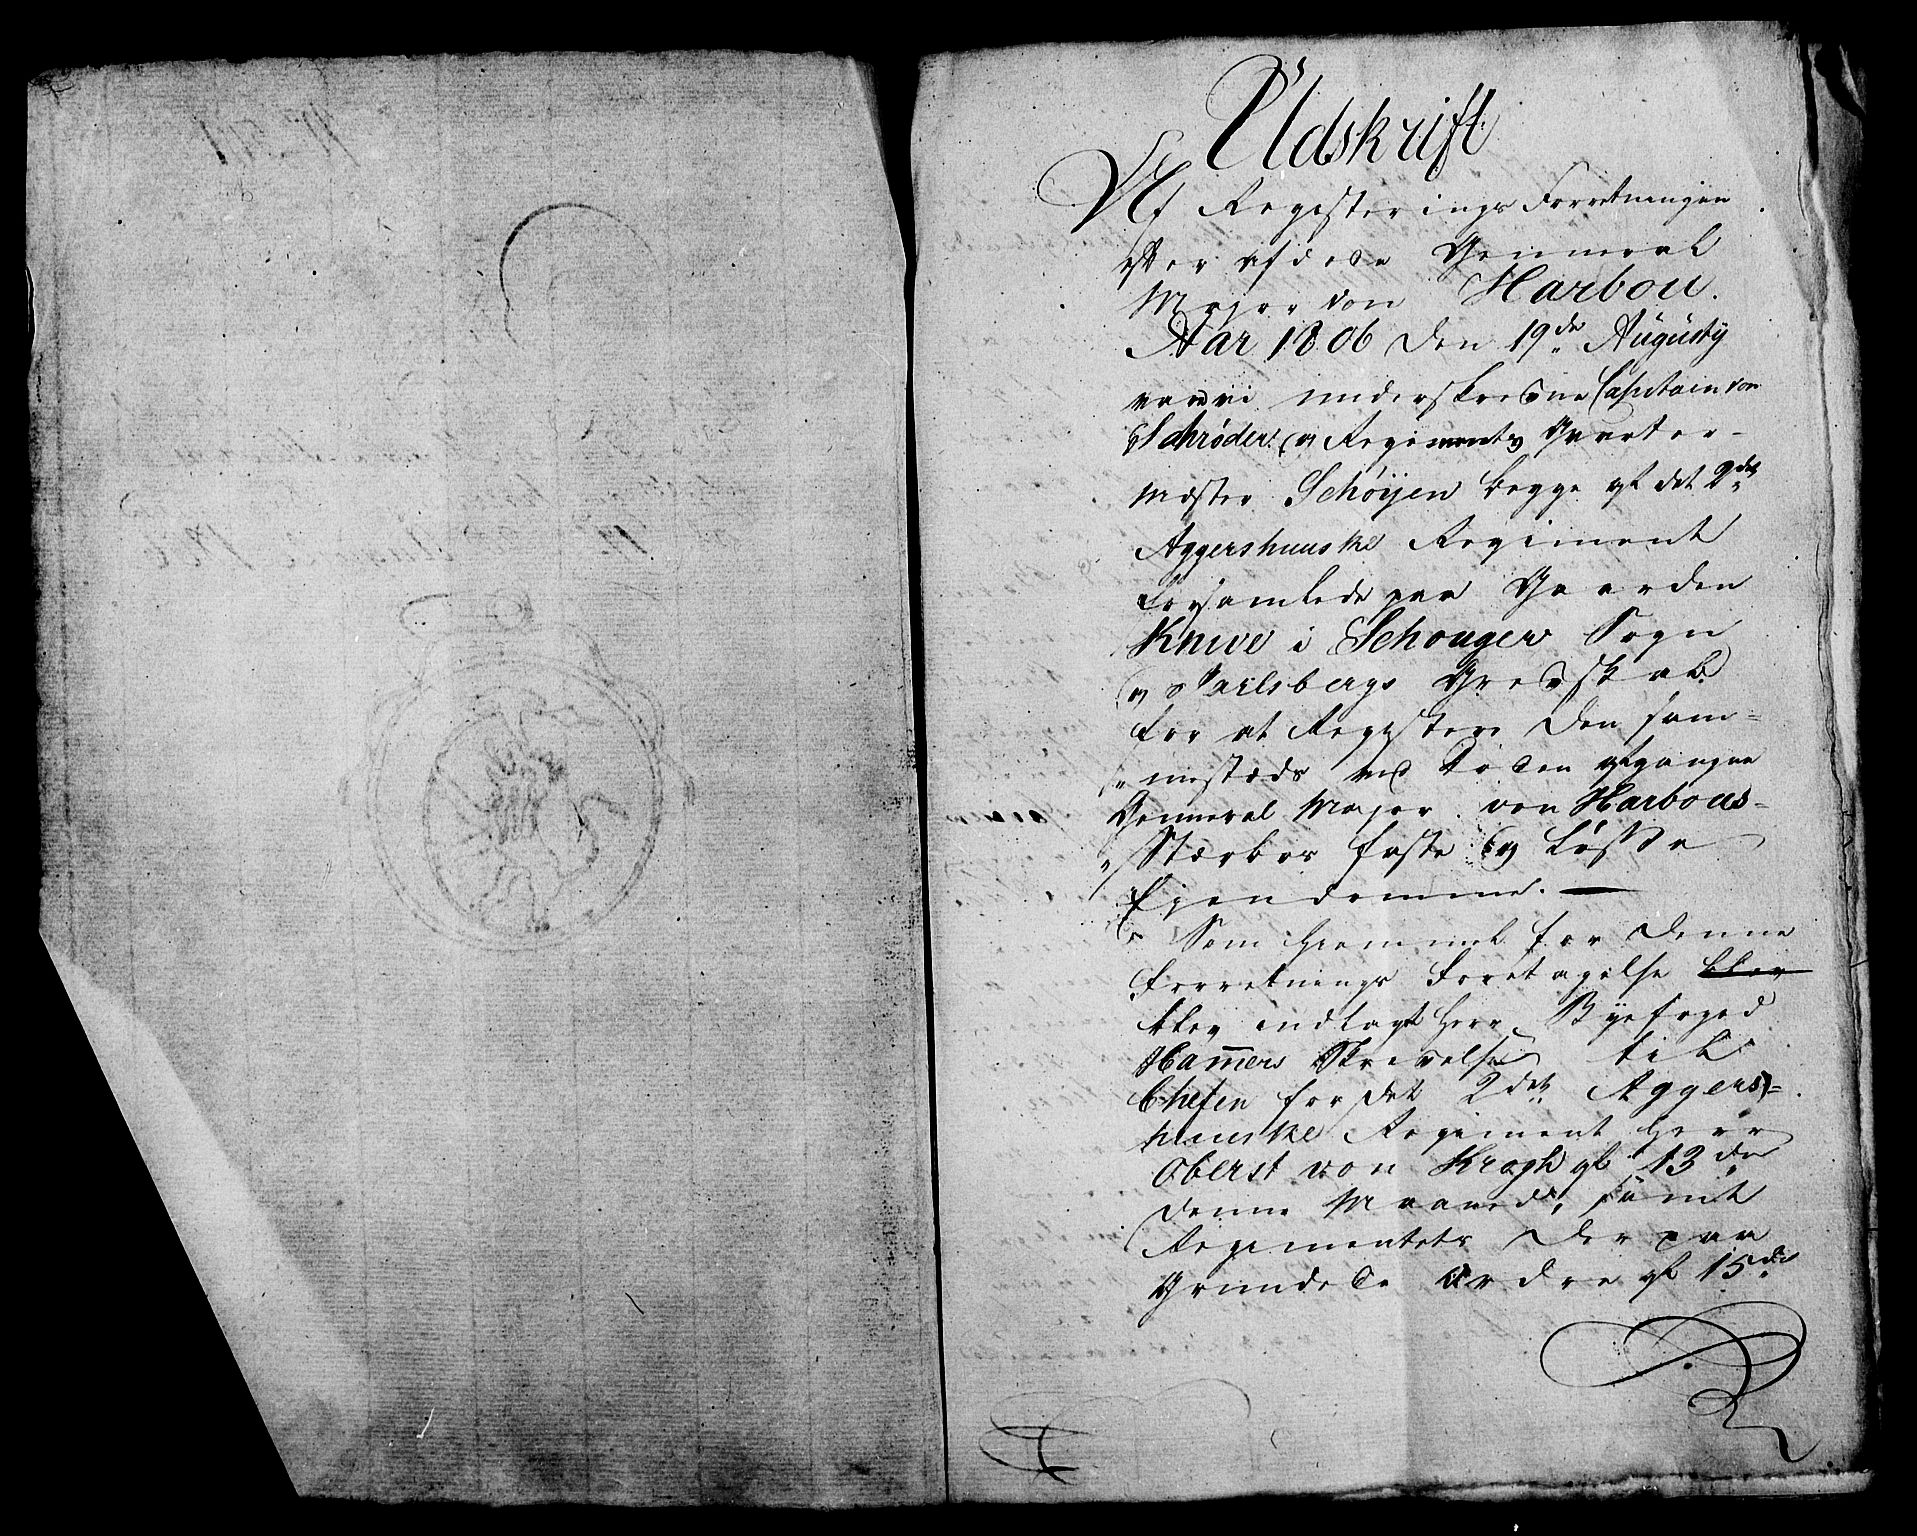 Udskrift
Af Registerings Forretningen
efter afdøde General
Major von Harbou.
Aar 1806 den 19de Augusty
vare vi underskrevne Capitain von
Schrøder og Regiments Qvarteer-
mester Schøijen begge af det 2det
Aggershuuske Regiment
forsamlede paa Gaarden
Knive i Schouger Sogn
og Jarlsbergs Grevskab
for at Registere den sam-
mestæds ved Døden afgangne
General Major von Harbous
Stærboes faste og Løsse
Ejendomme. —
Som Hiemmel for denne
Forretnings Foretagelse blev
blev indlagt Herr Byefoged
Ham̄ers Skrivelse til
Chefen for det 2det Aggers-
huuske Regiment Herr
Oberst von Krogh af 13de
denne Maaned, samt
Regimentets derpaa
grundede Ordre af 15de